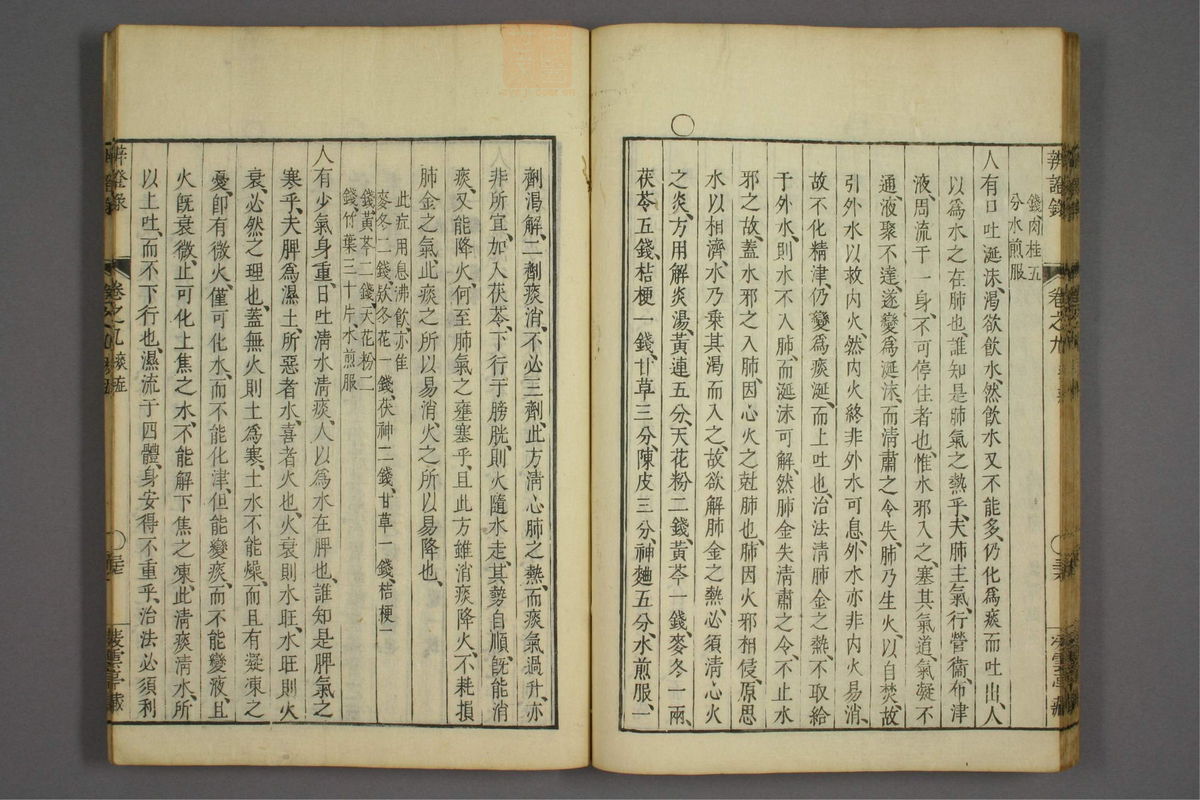 辨證錄
卷之九
錢肉桂五
分水煎服
人有口吐涎沫渴欲飲水然飲水又不能多仍化為痰而吐出人
以爲水之在肺也誰知是肺氣之熱乎夫肺主氣行營衞布津
液周流于一身不可停住者也惟水邪入之塞其氣道氣凝不
通液聚不達遂變爲涎沫而清肅之令失肺乃生火以自焚故
引外水以救内火然内火終非外水可息外水亦非内火易消
故不化精津仍變爲痰涎而上吐也治法清肺金之熱不取給
于外水則水不入肺而涎沫可解然肺金失清肅之令不止水
邪之故蓋水邪之入肺因心火之尅肺也肺因火邪相侵原思
水以相濟水乃乘其渴而入之故欲解肺金之熱必須清心火
之炎方用解炎湯黃連五分天花粉二錢黃芩一錢麥冬一兩
茯苓五錢桔梗一錢甘草三分陳皮三分神麯五分水煎服一
劑渴解二劑痰消不必三劑此方清心肺之熱而痰氣過升亦
非所宜加入茯苓下行于膀胱則火隨水走其勢自順旣能消
痰又能降火何至肺氣之壅塞乎且此方雖消痰降火不耗損
肺金之氣此痰之所以易消火之所以易降也
此症用息沸飲亦佳
麥冬二錢欵冬花一錢茯神二錢甘草一錢桔梗一
錢黃芩二錢天花粉二
錢竹葉三十片水煎服
人有少氣身重日吐清水清痰人以爲水在脾也誰知是脾氣之
寒乎夫脾爲濕土所惡者水喜者火也火衰則水旺水旺則火
衰必然之理也蓋無火則土爲寒土水不能燥而且有凝凍之
憂卽有微火僅可化水而不能化津但能變痰而不能變液且
火旣衰微止可化上焦之水不能解下焦之凍此清痰清水所
以上吐而不下行也濕流于四體身安得不重乎治法必須利
卷之九 痰症